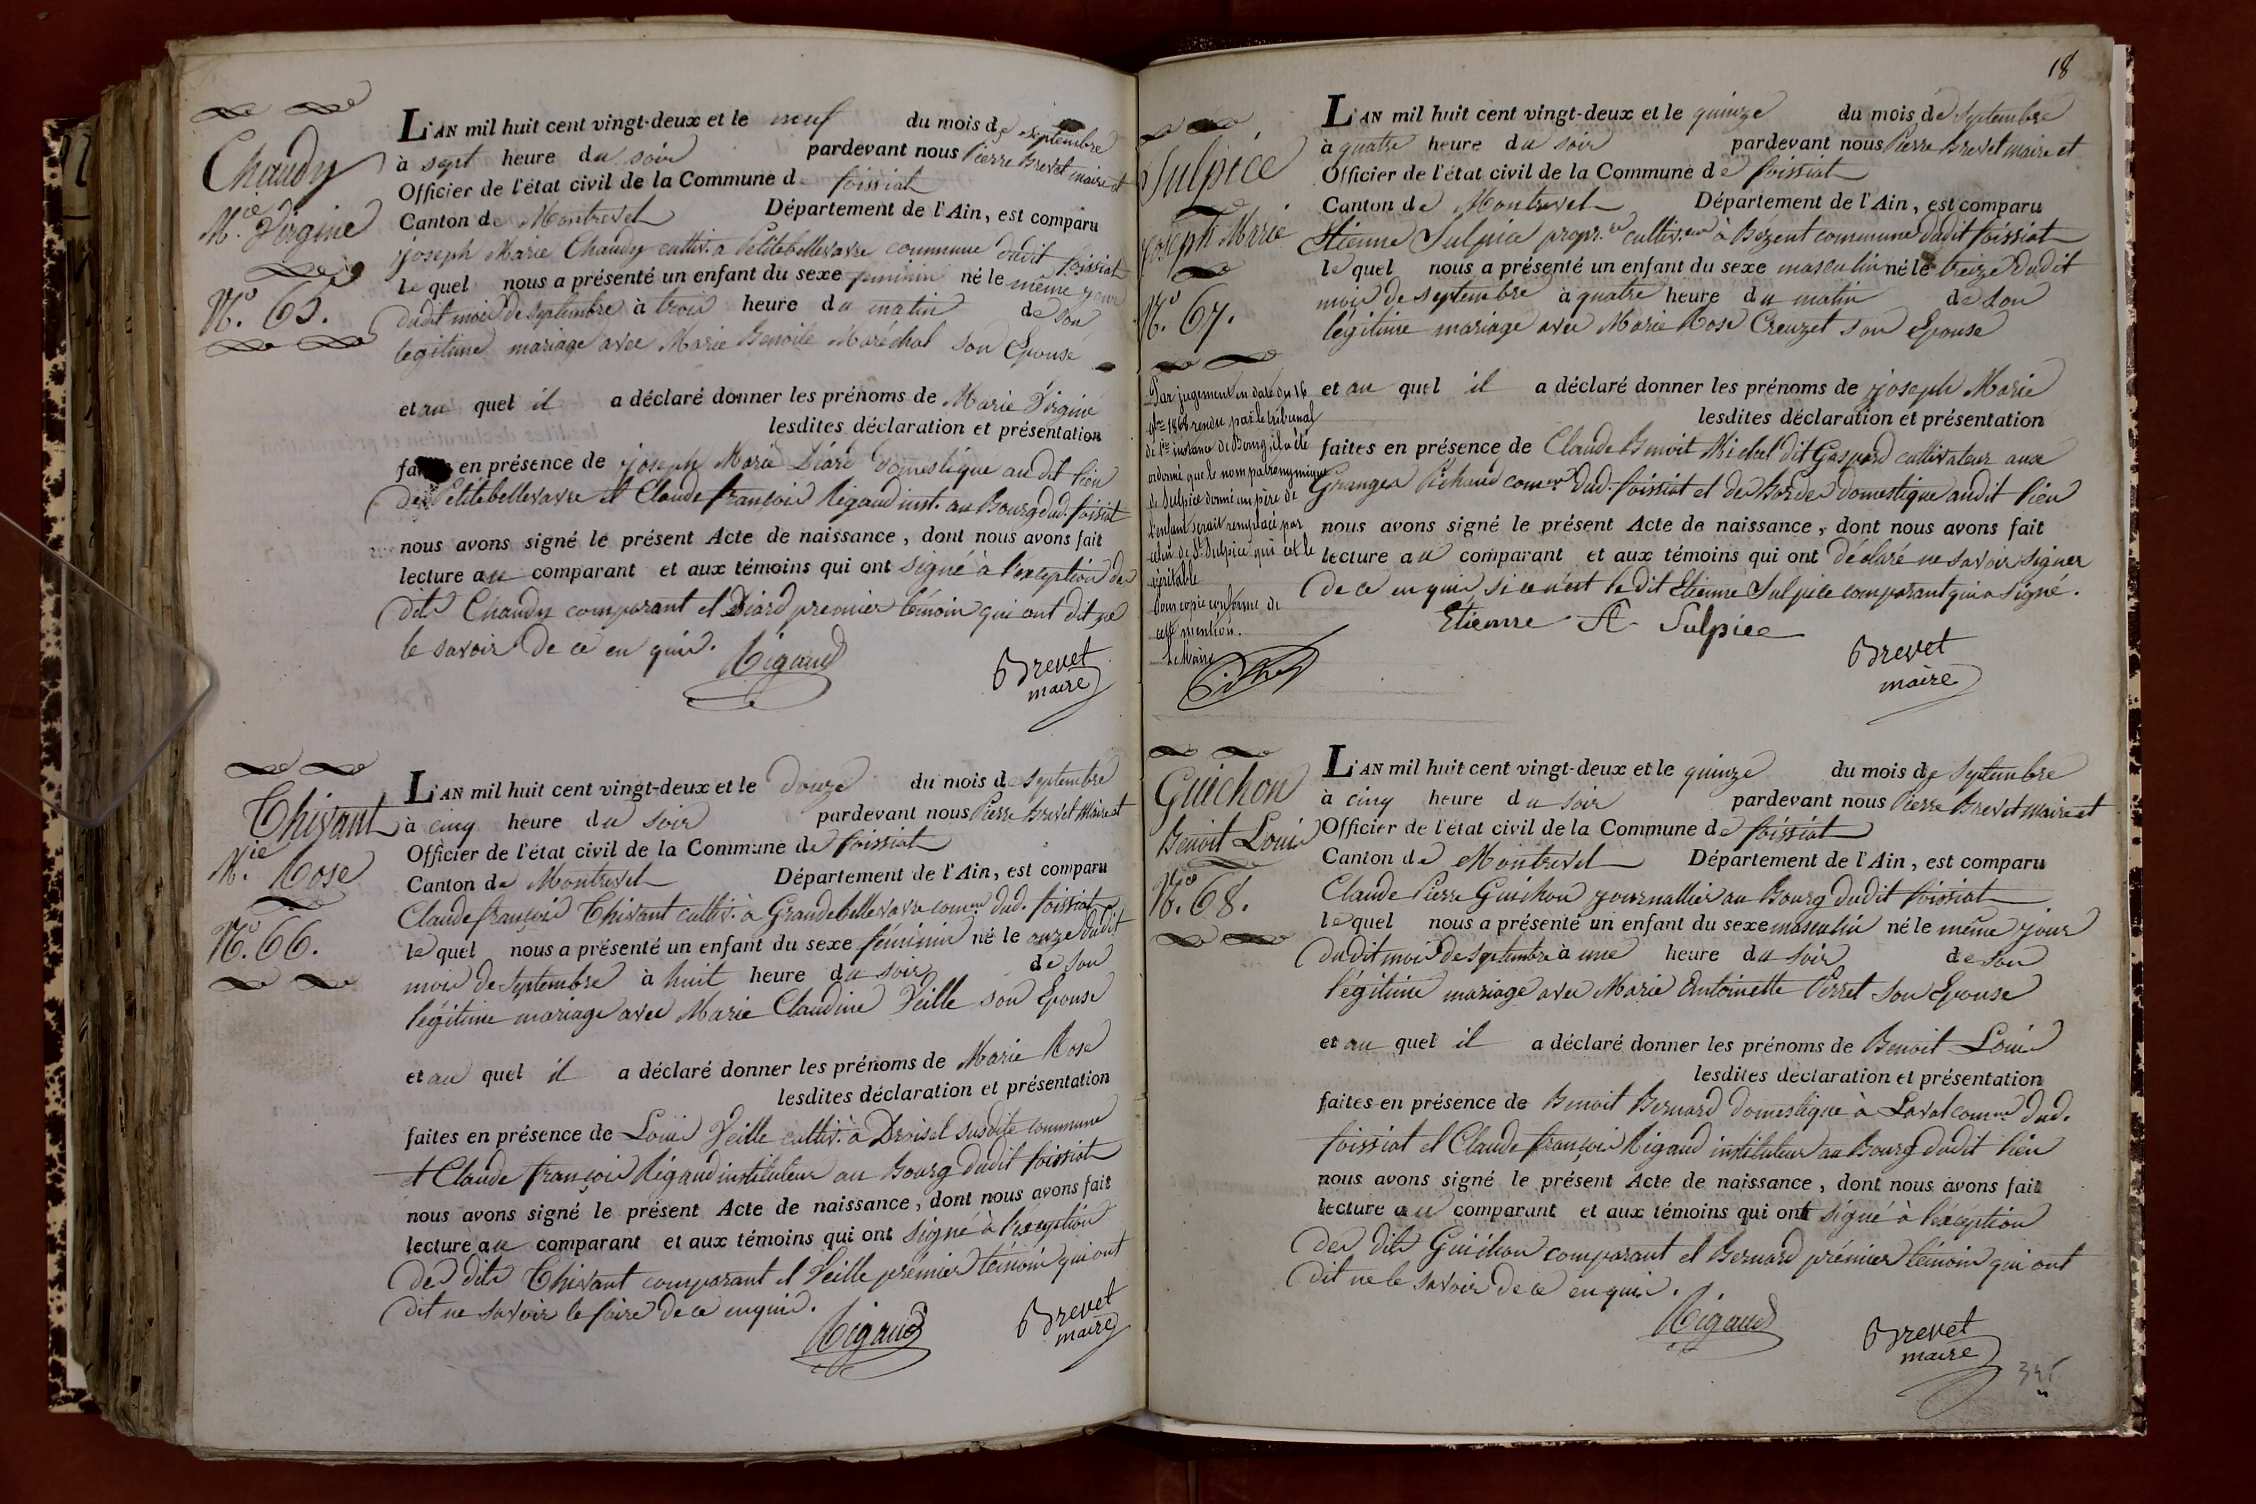 Chaudy
M.ie Virginie
N.o 65.
L'AN mil huit cent vingt-deux et le neuf du mois de septembre
à sept heure du soir pardevant nous Pierre Brevet maire et
Officier de l'état civil de la Commune de foissiat
Canton de Montrevel Département de l'Ain, est comparu
joseph Marie Chaudy cultiv. à Petitebellevavre commune dudit foissiat
lequel nous a présenté un enfant du sexe feminin né le même jour
dudit mois de septembre à trois heure du matin de son
legitime mariage avec Marie Benoite Maréchal son Epouse
et au quel il a déclaré donner les prénoms de Marie Virginie
lesdites déclaration et présentation
faites en présence de joseph Marie Diard domestique audit lieu
de Petitebellevavre et Claude françois Rigaud inst. au Bourg dud. foissiat
nous avons signé le présent Acte de naissance, dont nous avons fait
lecture au comparant et aux témoins qui ont signé à l'exception des
dits Chaudy comparant et Diard premier témoin qui ont dit ne
le savoir de ce enquis.
Rigaud
Brevet
maire
Thivant
M.ie Rose
N.o 66.
L'AN mil huit cent vingt-deux et le douze du mois de septembre
à cinq heure du soir pardevant nous Pierre Brevet Maire et
Officier de l'état civil de la Commune de foissiat
Canton de Montrevel Département de l'Ain, est comparu
Claude françois Thivant cultiv. à Grandebellevavre comm.e dud. foissiat
lequel nous a présenté un enfant du sexe féminin né le onze dudit
mois de septembre à huit heure du soir de son
légitime mariage avec Marie Claudine Veille son Epouse
et au quel il a déclaré donner les prénoms de Marie Rose
lesdites déclaration et présentation
faites en présence de Louis Veille cultiv. à susdite commune
et Claude françois Rigaud instituteur au Bourg dudit foissiat
nous avons signé le présent Acte de naissance, dont nous avons fait
lecture au comparant et aux témoins qui ont signé à l'exception
des dits Thivant comparant et Veille premier témoin qui ont
dit ne savoir le faire de ce enquis.
Rigaud
Brevet
maire
18
Sulpice
joseph Marie
N.o 67.
Par jugement en date du 16
9bre 1868 rendu par le tribunal
de 1re instance de Bourg, il a été
ordonné que le nom patronymique
de Sulpice donné au père de
l'enfant serait remplacé par
celui de St Sulpice qui est le
véritable
Pour copie conforme de
cette mention.
Le Maire
L'AN mil huit cent vingt-deux et le quinze du mois de septembre
à quatre heure du soir pardevant nous Pierre Brevet maire et
Officier de l'état civil de la Commune de foissiat
Canton de Montrevel Département de l'Ain, est comparu
Etienne Sulpice propr.re cultiv.eur à Bézent commune dudit foissiat
lequel nous a présenté un enfant du sexe masculin né le treize dudit
mois de septembre à quatre heure du matin de son
légitime mariage avec Marie Rose Creuzet son Epouse
et au quel il a déclaré donner les prénoms de joseph Marie
lesdites déclaration et présentation
faites en présence de Claude Benoit Michel dit Gaspard cultivateur aux
Granges Pichaud comm.e dud. foissiat et des Bordes domestique audit lieu
nous avons signé le présent Acte de naissance, dont nous avons fait
lecture au comparant et aux témoins qui ont déclaré ne savoir signer
de ce enquis si ce n'est le dit Etienne Sulpice comparant qui a signé.
Etienne St Sulpice
Brevet
maire
Guichon
Benoit Louis
N.o 68.
L'AN mil huit cent vingt-deux et le quinze du mois de septembre
à cinq heure du soir pardevant nous Pierre Brevet Maire et
Officier de l'état civil de la Commune de foissiat
Canton de Montrevel Département de l'Ain, est comparu
Claude Pierre Guichon journallier au Bourg dudit foissiat
lequel nous a présenté un enfant du sexe masculin né le même jour
dudit mois de septembre à une heure du soir de son
légitime mariage avec Marie Antoinette Perret son Epouse
et au quel il a déclaré donner les prénoms de Benoit Louis
lesdites déclaration et présentation
faites en présence de Benoit Bernard domestique à Laval comm.e dud.
foissiat et Claude françois Rigaud instituteur au Bourg dudit lieu
nous avons signé le présent Acte de naissance, dont nous avons fait
lecture au comparant et aux témoins qui ont signé à l'exception
des dits Guichon comparant et Bernard prémier témoin qui ont
dit ne le savoir de ce enquis.
Rigaud
Brevet
maire